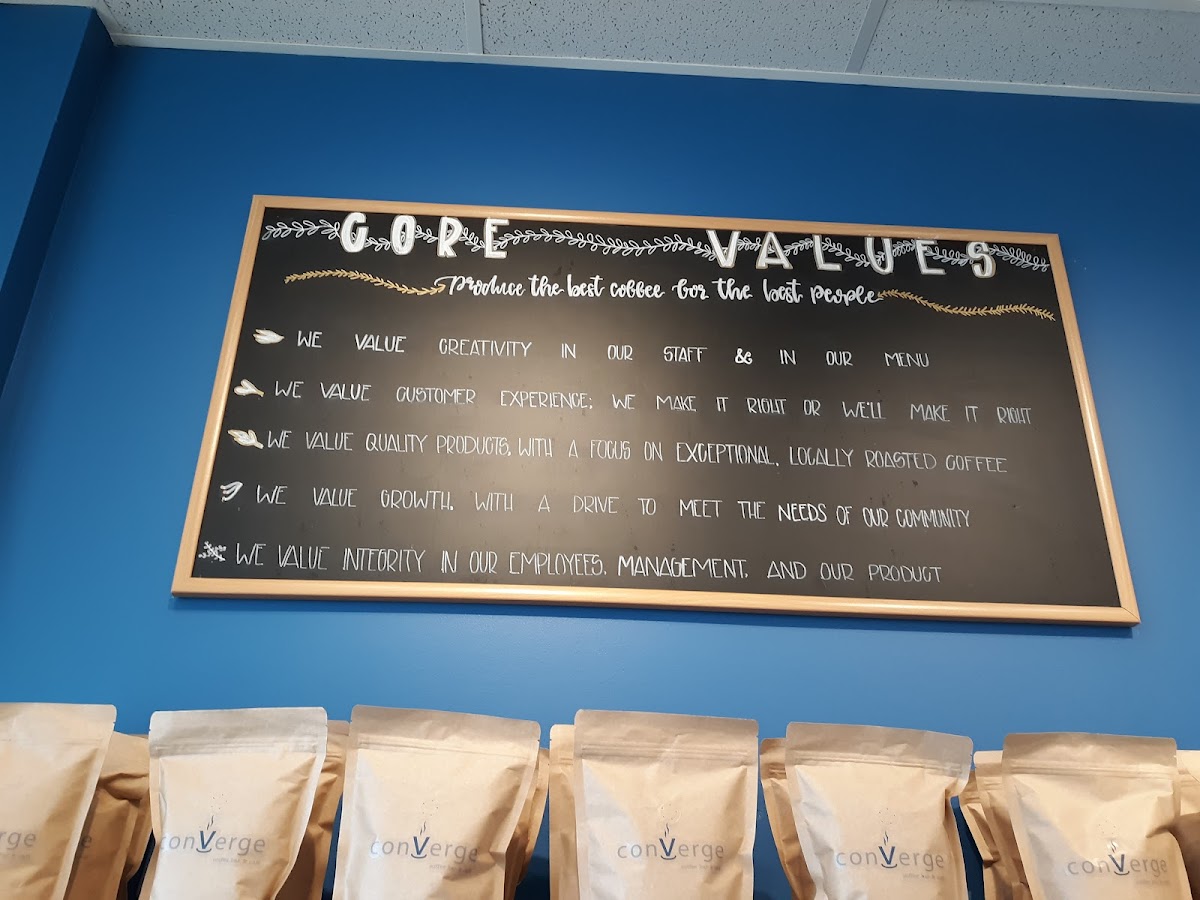 CORE VALUES
produce the best coffee for the best people
WE VALUE CREATIVITY IN OUR STAFF & IN OUR MENU
WE VALUE CUSTOMER EXPERIENCE; WE MAKE IT RIGHT OR WE'LL MAKE IT RIGHT
WE VALUE QUALITY PRODUCTS, WITH A FOCUS ON EXCEPTIONAL, LOCALLY ROASTED COFFEE
WE VALUE GROWTH, WITH A DRIVE TO MEET THE NEEDS OF OUR COMMUNITY
WE VALUE INTEGRITY IN OUR EMPLOYEES, MANAGEMENT, AND OUR PRODUCT
rge
conVerge
conVerge
conVerge
conVerge
conVerge